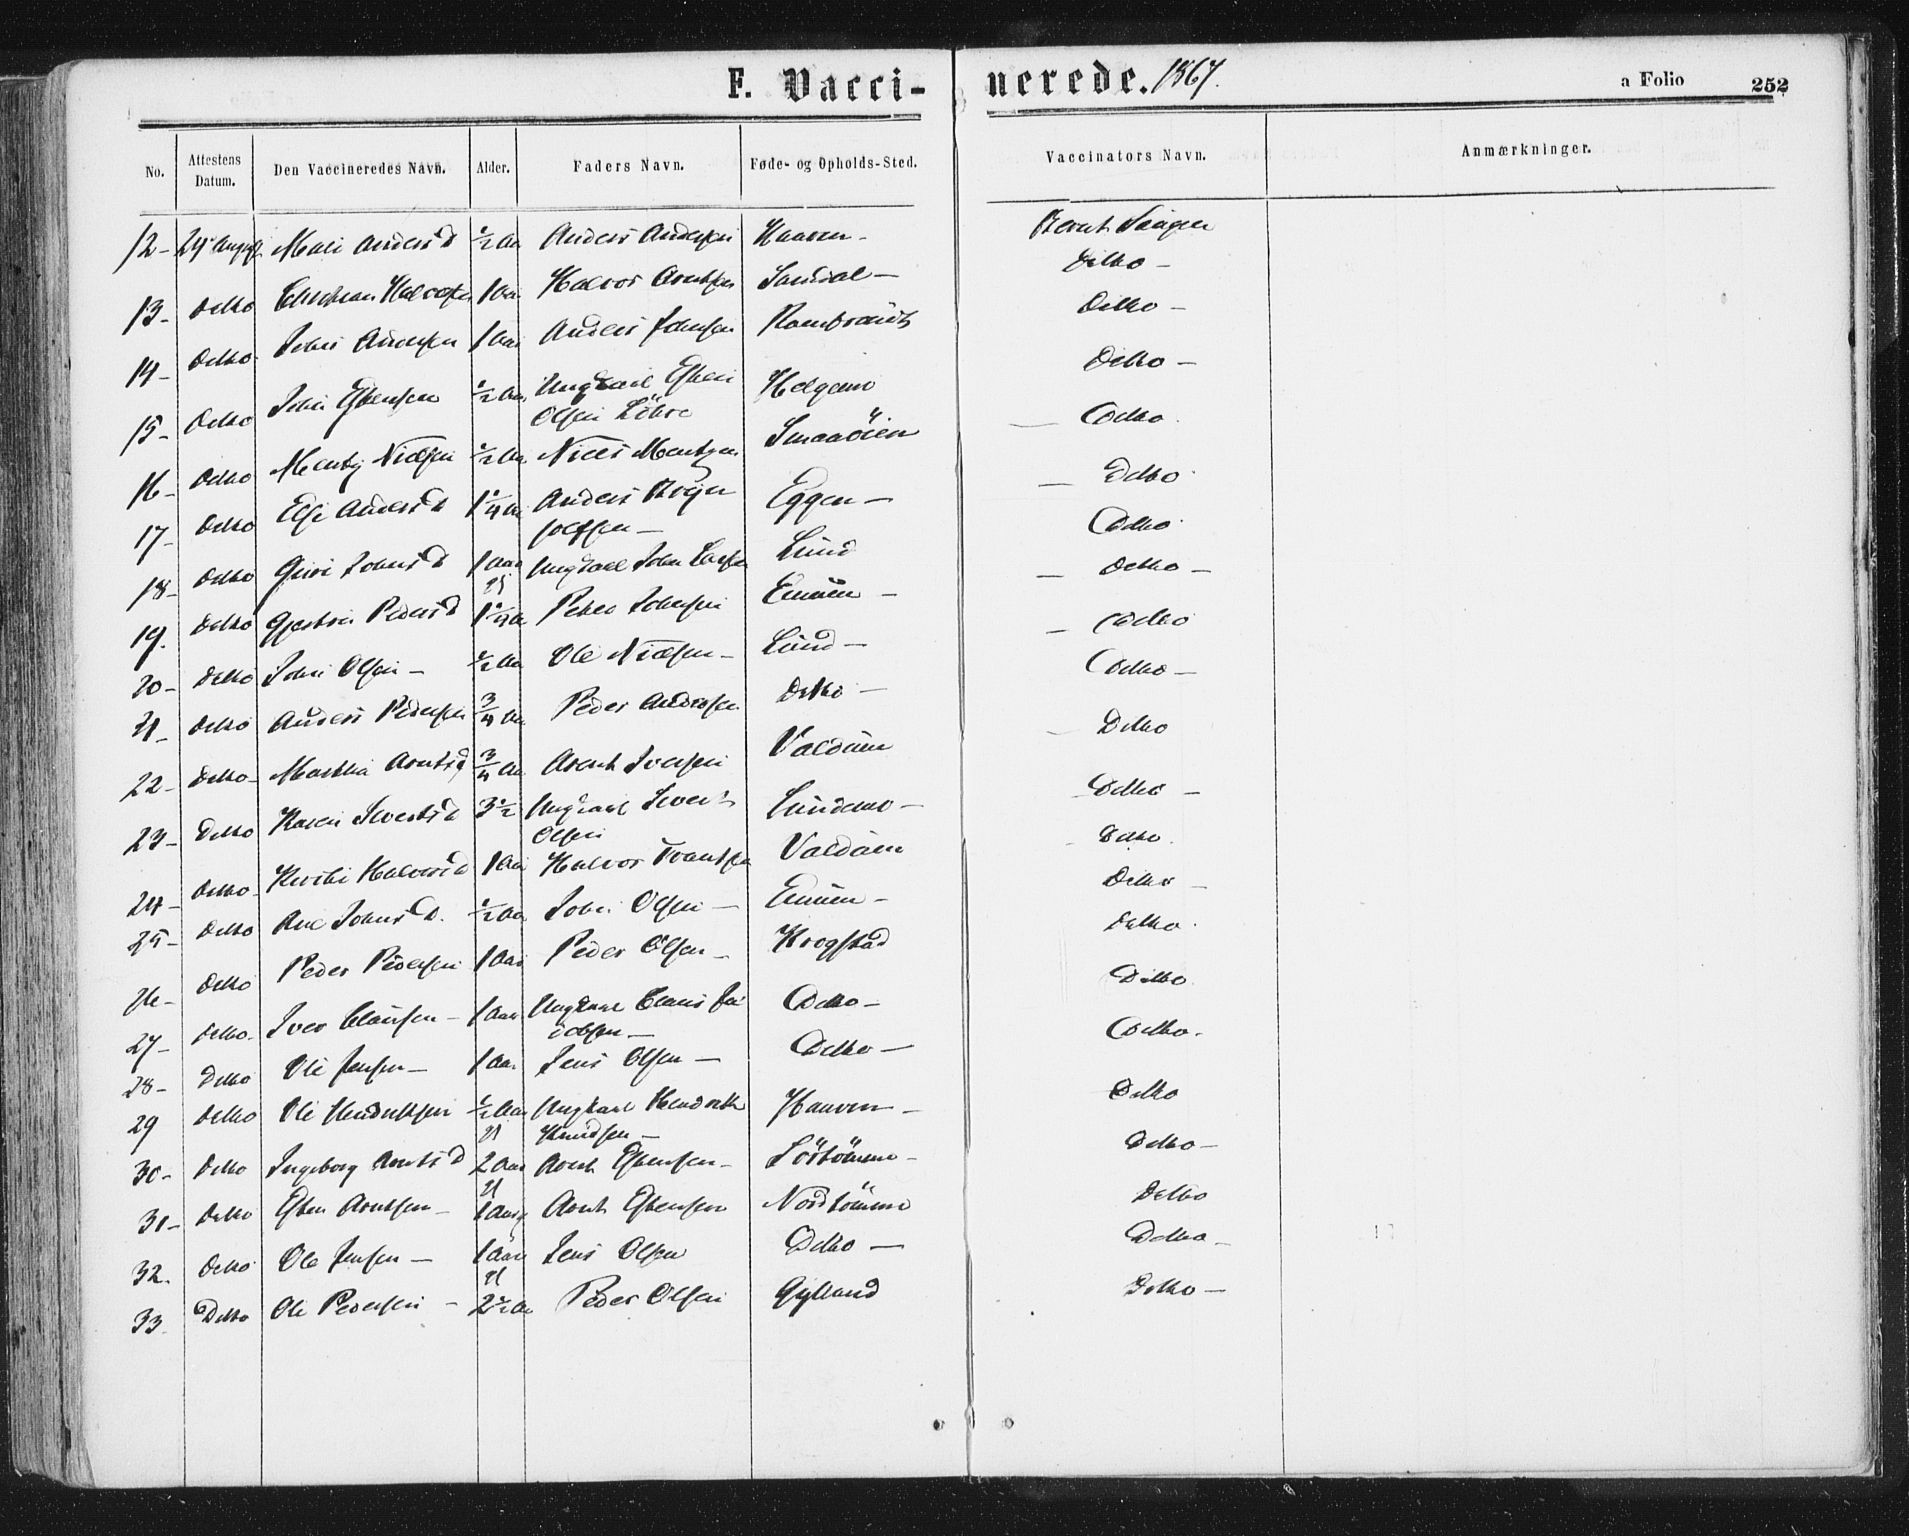 F. Vacci- nerede. 1867. a Folio 252
No. Attestens Datum. Den Vaccineredes Navn. Alder. Faders Navn. Føde- og Opholds-Sted. Vaccinators Navn. Anmærkninger.
12- 24 August Mali Andersd ½ Aar Anders Andersen Haaven- Bernt
13- Detto Halvorsen 1 Aar Halvor Arntsen Sandal- Ditto-
14- Detto John Andersen 1 Aar Anders Johnsen Detto-
15- Detto John Esbensen ½ Aar Ungkarl Esben Helgemo Detto-
Olsen Løhre
16- Detto Mentz Nielsen ½ Aar Niels Mentzen Smaaöien Detto.
17- Detto Elje Andersd 1¼ Aar Anders Eggen- Detto.
18- Detto Guri Johnsd 1 Aar Ungkarl John Lund Detto.
19. Detto Gjertru Pedersd 1¼ Aar Peter Johnsen - Detto-
20- Detto John Olsen- ½ Aar Ole Nielsen- Lund- Detto
21- Detto Anders Pedersen ¾ Aar Peder Andersen Detto- Detto-
22- Detto- Martha Arntsd ¾ Aar Arent Iversen Valdum Detto
23- Detto Karen Sivertsd 3½ Ungkarl Sivert Lundemo- Detto-
Olsen
24- Detto- Kirsti Halvorsd 1 Aar Halvor Valdum Detto.
25- Detto Ane Johnsd. ½ Aar John Olsen- - Detto-
26- Detto Peder Pedersen 1 Aar Peder Olsen- Krogstad Detto.
27- Detto. Iver Clausen- 1 Aar Ungkarl Claus Ja- Detto- Detto
cobsen-
28- Detto Ole Jensen- 1 Aar Jens Olsen- Detto- Detto.
29 Detto Ole Hendriksen ½ Aar Ungkarl Hendrik Haaven- Detto
Knudsen-
30- Detto Ingeborg Arntsd 2 Aar Arent Esbensen- Sörtömme- Detto-
31- Detto Esben Arntsen- 1 Aar Arnt Esbensen Nordtömme Detto
32. Detto Ole Jensen- 1 Aar Jens Olsen Detto- Detto-
33. Detto Ole Pedersen- 2½ Aar Peder Olsen Gylland Detto-